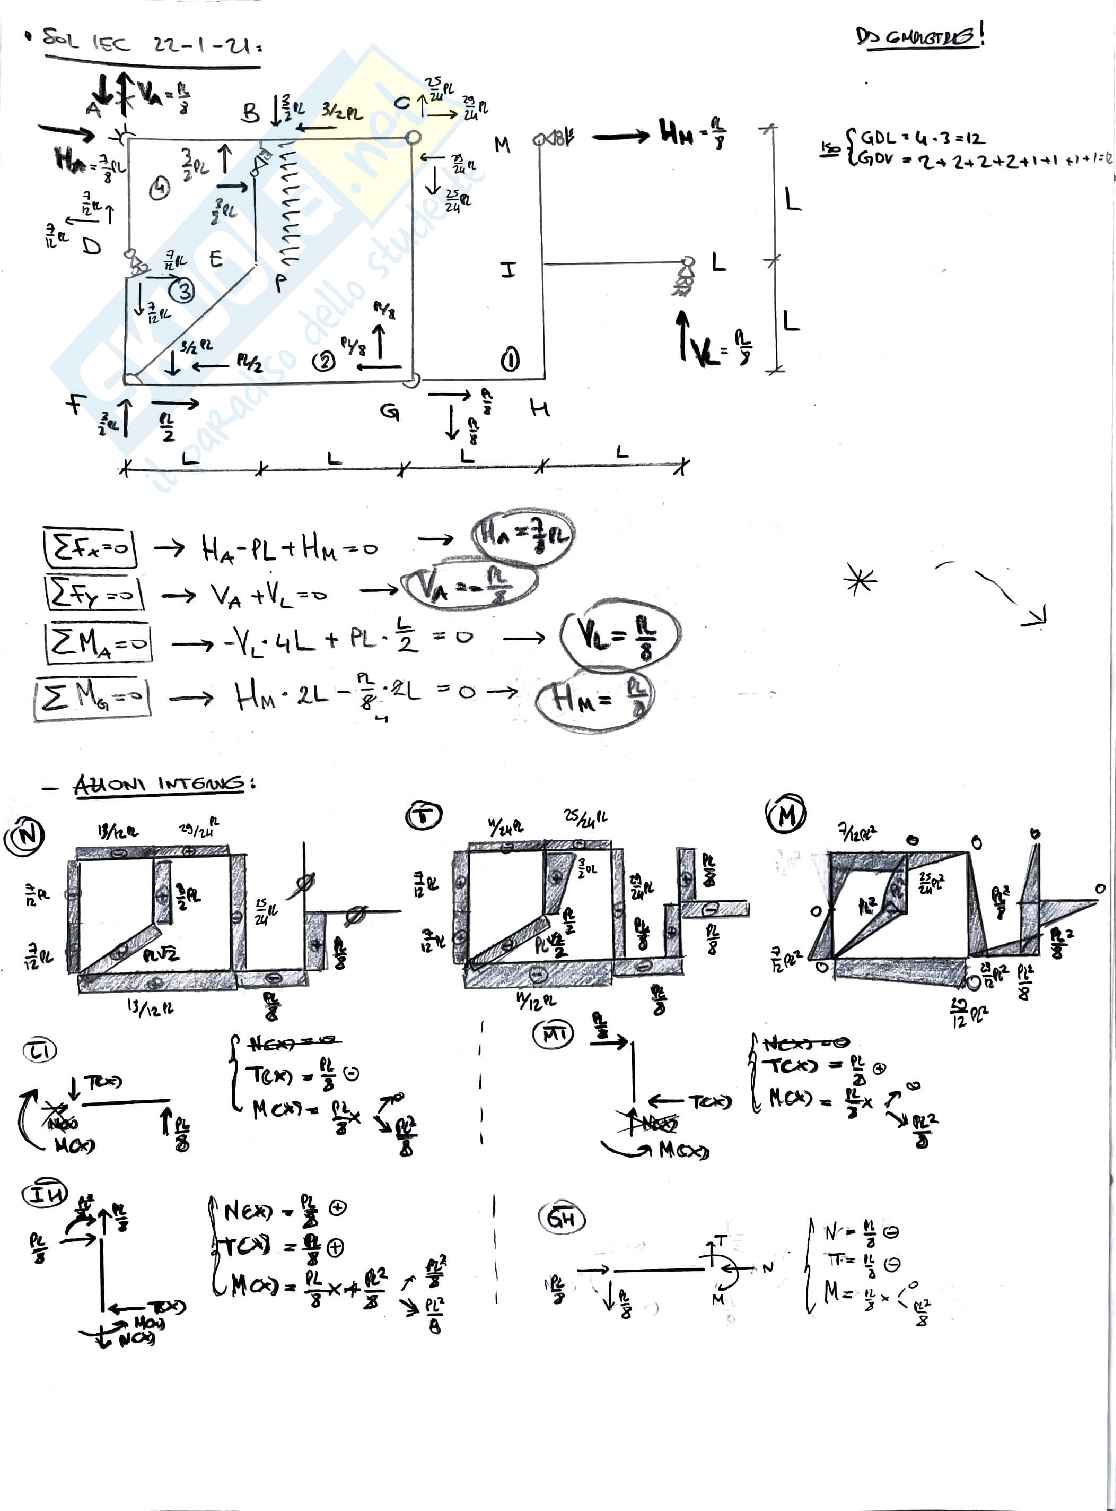 • SOL IEC 22-1-21:
DA COMPLETARE!
A
V_A = PL/8
B
3/2 PL
3/2 PL
C
25/24 PL
29/24 PL
M
H_M = PL/8
ISO { GDL = 4·3 = 12
GDV = 2+2+2+2+1+1+1+1=12
H_A = 7/8 PL
3/2 PL
4
25/24 PL
L
7/12 PL
7/12 PL
D
E
P
I
L
7/12 PL
3
7/12 PL
3/2 PL
PL/2
2
PL/8
PL/8
1
V_L = PL/8
L
F
3/2 PL
PL/2
G
PL/8
PL/8
H
L L L L
ΣFx=0 → H_A - PL + H_M = 0 → H_A = 7/8 PL
ΣFy=0 → V_A + V_L = 0 → V_A = - PL/8
ΣM_A=0 → -V_L · 4L + PL · L/2 = 0 → V_L = PL/8
ΣM_G=0 → H_M · 2L - PL/8 · 2L = 0 → H_M = PL/8
- AZIONI INTERNE:
N
13/12 PL
29/24 PL
7/12 PL
3/2 PL
25/24 PL
7/12 PL
PL√2
PL/8
13/12 PL
PL/8
T
11/12 PL
25/24 PL
7/12 PL
3/2 PL
29/24 PL
PL/8
7/12 PL
PL√2/2
PL/2
PL/8
PL/8
11/12 PL
PL/8
M
7/12 PL²
0
0
0
PL²
25/24 PL²
PL²/8
0
0
7/12 PL²
0
0
29/12 PL²
PL²/8
PL²/8
29/12 PL²
LI
T(x)
N(x)
M(x)
PL/8
N(x) = 0
T(x) = PL/8 ⊖
M(x) = PL/8 x → 0
PL²/8
MI
PL/8
T(x)
N(x)
M(x)
N(x) = 0
T(x) = PL/8 ⊕
M(x) = PL/8 x → 0
PL²/8
IH
PL²/8
PL/8
PL/8
T(x)
M(x)
N(x)
N(x) = PL/8 ⊕
T(x) = PL/8 ⊕
M(x) = PL/8 x + PL²/8
PL²/8
GH
PL/8
PL/8
T
N
M
N = PL/8 ⊖
T = PL/8 ⊖
M = PL/8 x < 0
PL²/8